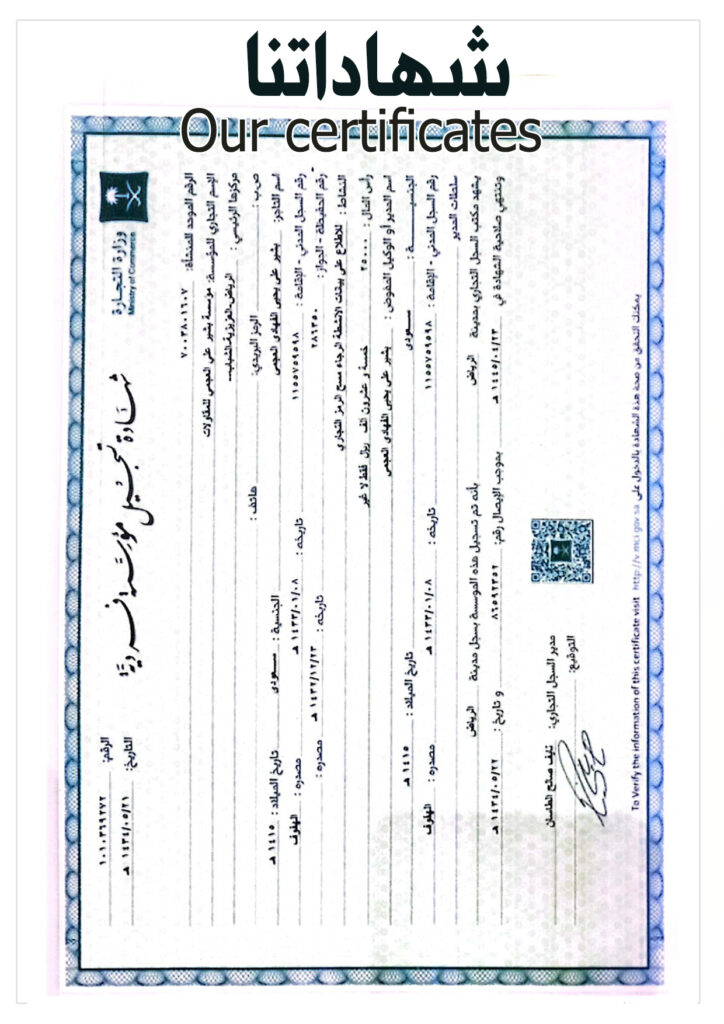 شهاداتنا
Our certificates
وزارة التجارة
Ministry of Commerce
شهادة تسجيل مؤسسة فردية
الرقم: ١٠١٠٣٦٩٢٧٢
التاريخ: ١٤٣٤/٠٥/٢١ هـ
الرقم الموحد للمنشأة: ٧٠٠٣٨٠١٦٠٧
الإسم التجاري للمؤسسة: مؤسسة بشير علي العجمي للمقاولات
مركزها الرئيسي: الرياض-العزيزية-الشباب...
ص.ب: الرمز البريدي: هاتف:
اسم التاجر: بشير علي يحيى الفهادي العجمي الجنسية: سعودي تاريخ الميلاد: ١٤١٥ هـ
رقم السجل المدني - الإقامة: ١١٥٥٧٥٩٥٩٨ تاريخه: ١٤٣٣/٠١/٠٨ هـ مصدره: الهفوف
رقم الحفيظة - الجواز: ٢٨٦٣٥٠ تاريخه: ١٤٣٢/١٢/٢٣ هـ مصدره:
النشاط: للاطلاع على بيانات الانشطة الرجاء مسح الرمز التجاري
رأس المال: ٢٥٠٠٠ خمسة و عشرون الف ريال فقط لا غير
اسم المدير أو الوكيل المفوض: بشير علي يحيى الفهادي العجمي
الجنسية: سعودي تاريخ الميلاد: ١٤١٥ هـ
رقم السجل المدني - الإقامة: ١١٥٥٧٥٩٥٩٨ تاريخه: ١٤٣٣/٠١/٠٨ هـ مصدره: الهفوف
سلطات المدير
يشهد مكتب السجل التجاري بمدينة الرياض بأنه تم تسجيل هذه المؤسسة بسجل مدينة الرياض
وتنتهي صلاحية الشهادة في ١٤٤٥/٠١/٢٣ هـ بموجب الإيصال رقم: ٨٦٥٩٢٣٥٢ و تاريخ: ١٤٣٤/٠٥/٢٢ هـ
مدير السجل التجاري: نايف صالح
التوقيع:
يمكنك التحقق من صحة هذه الشهادة بالدخول على
To Verify the information of this certificate visit http://v.mci.gov.sa